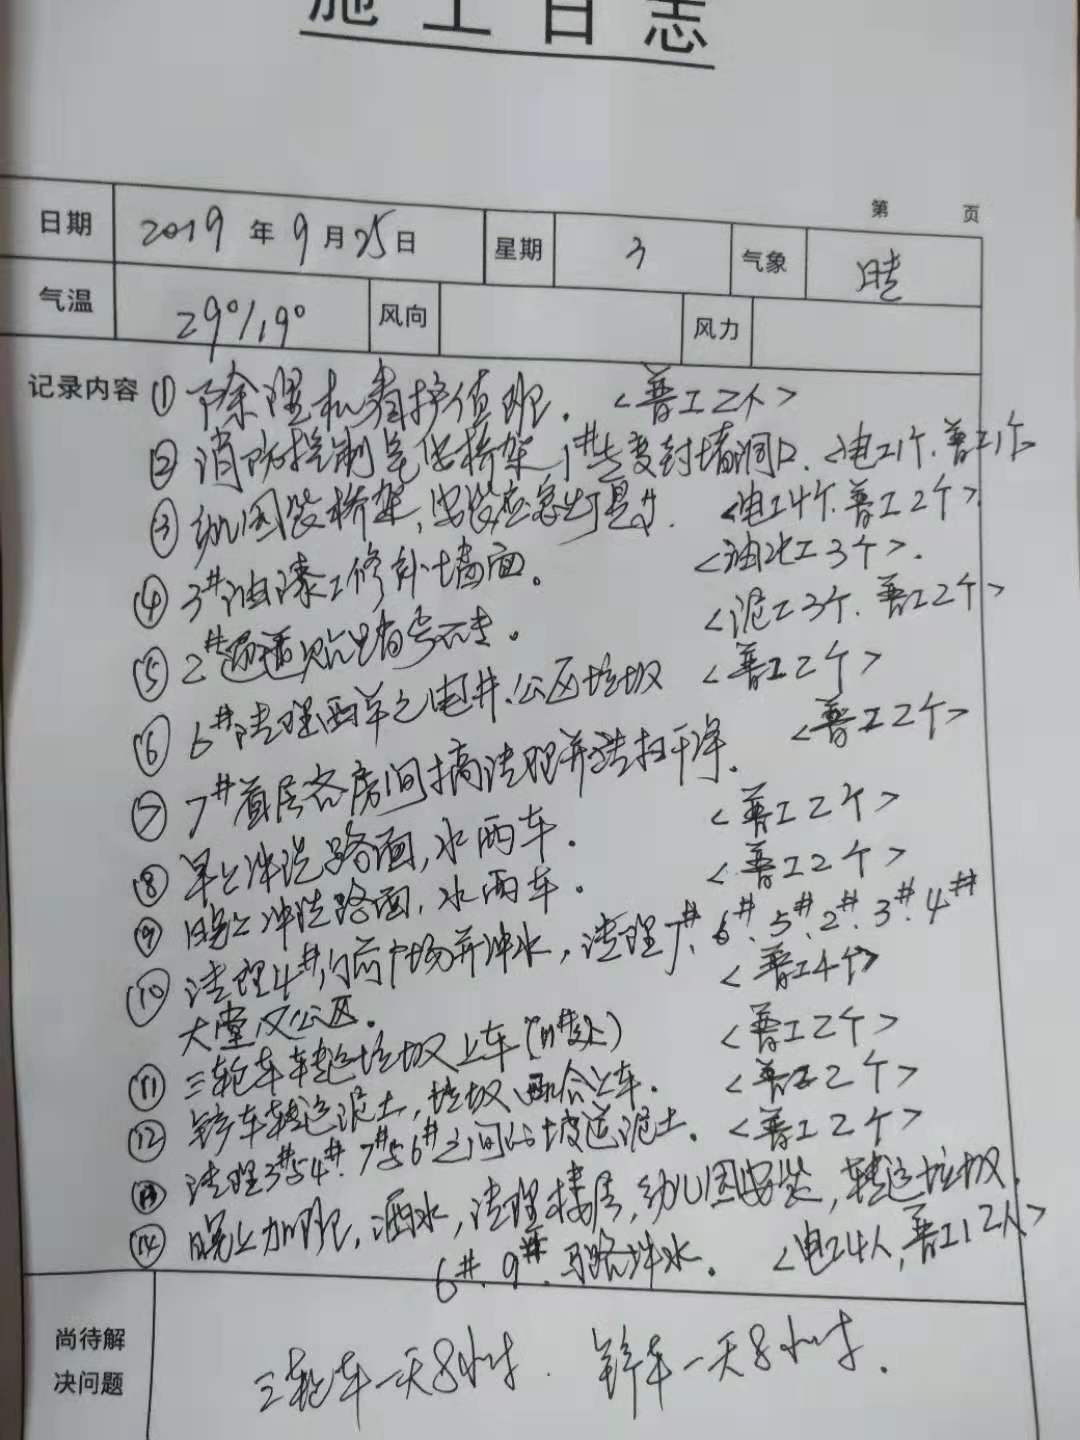 施工日志
第 页
日期 2019年9月25日 星期 3 气象 晴
气温 29°/19° 风向 风力
记录内容 ① 降理机看护值班. <普工2人>
② 消防控制室做桥架 1#专变封墙洞口. <电工1个.普工1个>
③ 幼儿园装桥架,安装应急灯具. <电工4个.普工2个>
④ 3#油漆工修补墙面。 <油漆工3个>.
⑤ 2#通道贴 <泥工3个.普工2个>
⑥ 6#清理西单元电井.公区垃圾 <普工2个>
⑦ 7#首层各房间清理并清扫干净. <普工2个>
⑧ 早上冲洗路面,水两车. <普工2个>
⑨ 晚上冲洗路面,水两车. <普工2个>
⑩ 清理4#前广场并冲水,清理7#.6#.5#.2#.3#.4#
大堂及公区. <普工4个>
⑪ 三轮车转运垃圾上车 <普工2个>
⑫ 铲车转运泥土,垃圾配合上车. <普工2个>
⑬ 清理3#与4#.7#与6#之间的坡道泥土. <普工2个>
⑭ 晚上加班,洒水,清理楼层,幼儿园安装,转运垃圾.
6#.9#.马路冲水. <电工4人,普工12人>
尚待解
决问题 三轮车一天8小时. 铲车一天8小时.